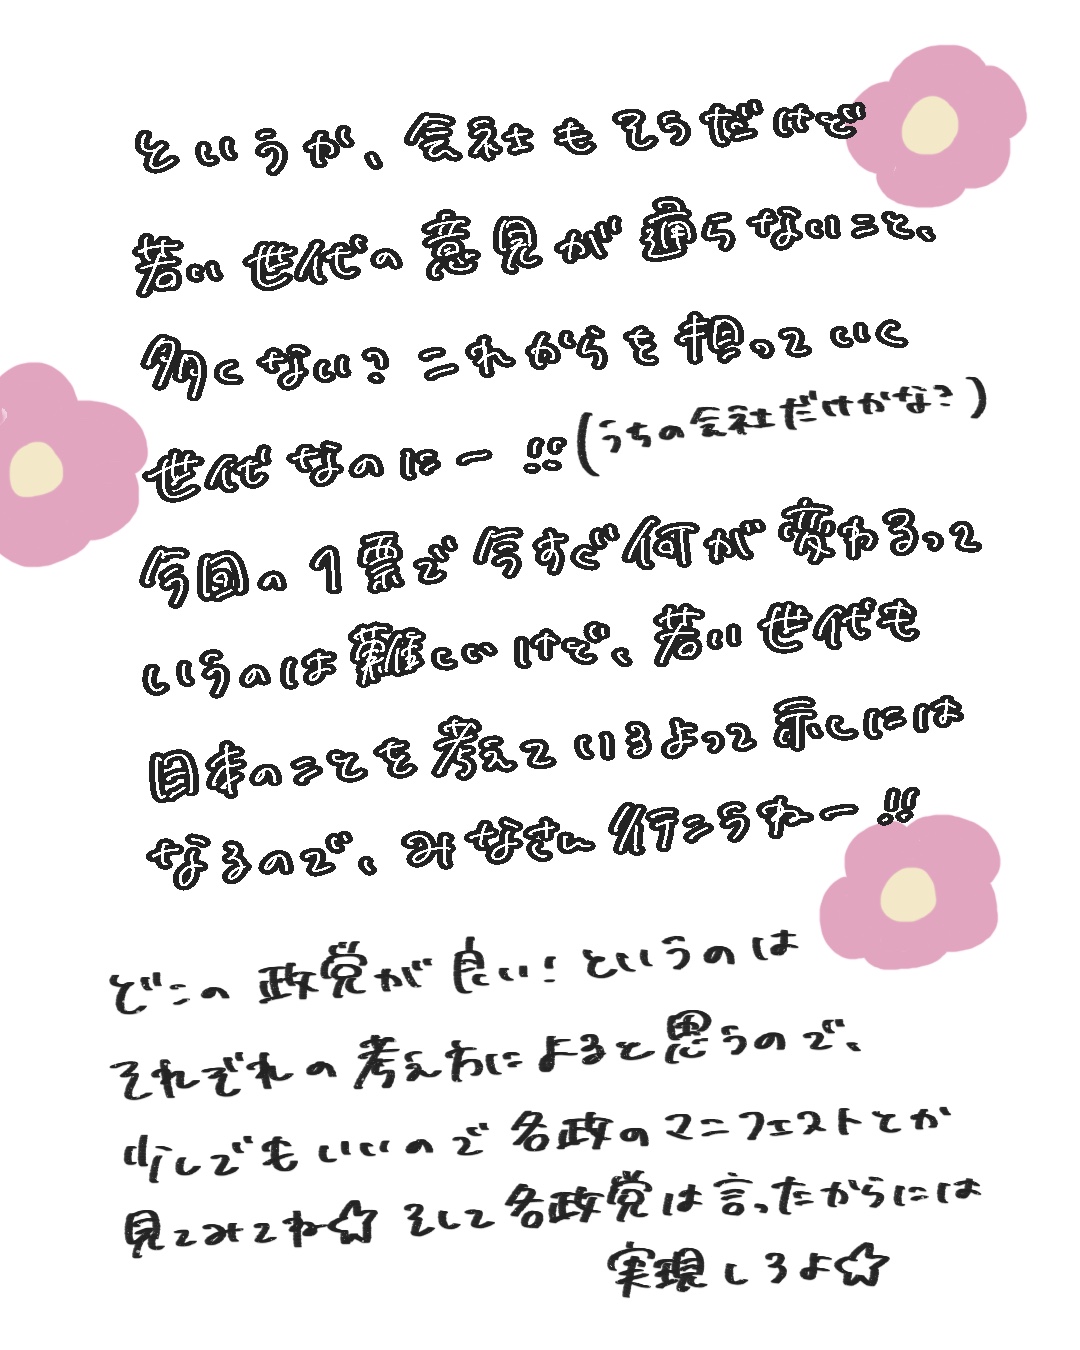 というか、会社もそうだけど
若い世代の意見が通らないこと、
多くない？これからを担っていく
世代なのにー!!(うちの会社だけかな？)
今回の1票で今すぐ何が変わるって
いうのは難しいけど、若い世代も
日本のことを考えているよって示しには
なるので、みなさん行こうねー!!
どこの政党が良い！というのは
それぞれの考え方によると思うので、
少しでもいいので各政のマニフェストとか
見てみてね☆ そして各政党は言ったからには
実現しろよ☆